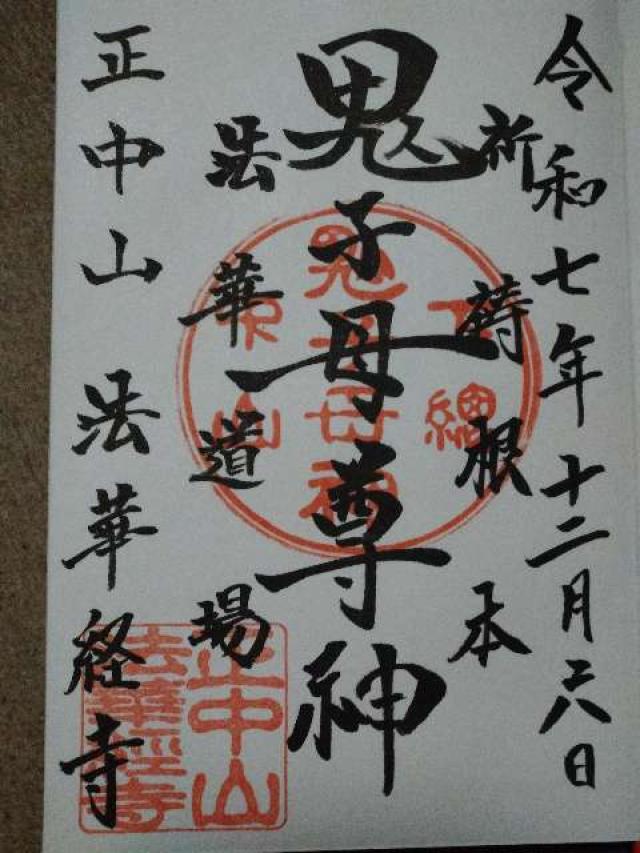 令和七年十二月二八日
祈祷根本
鬼子母尊神
法華道場
正中山 法華経寺
下總
鬼子母神
中山
正中山
法華經寺